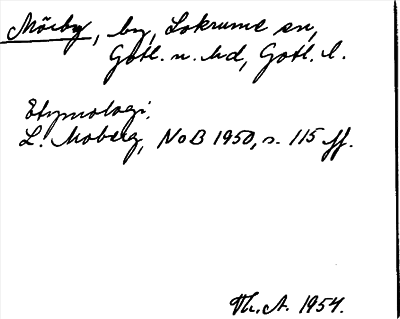 Mörby, by, Lokrume sn,
Gotl. n. hd, Gotl. l.
Etymologi.
L. Moberg, NoB 1950, s. 115 ff.
Th. A. 1954.